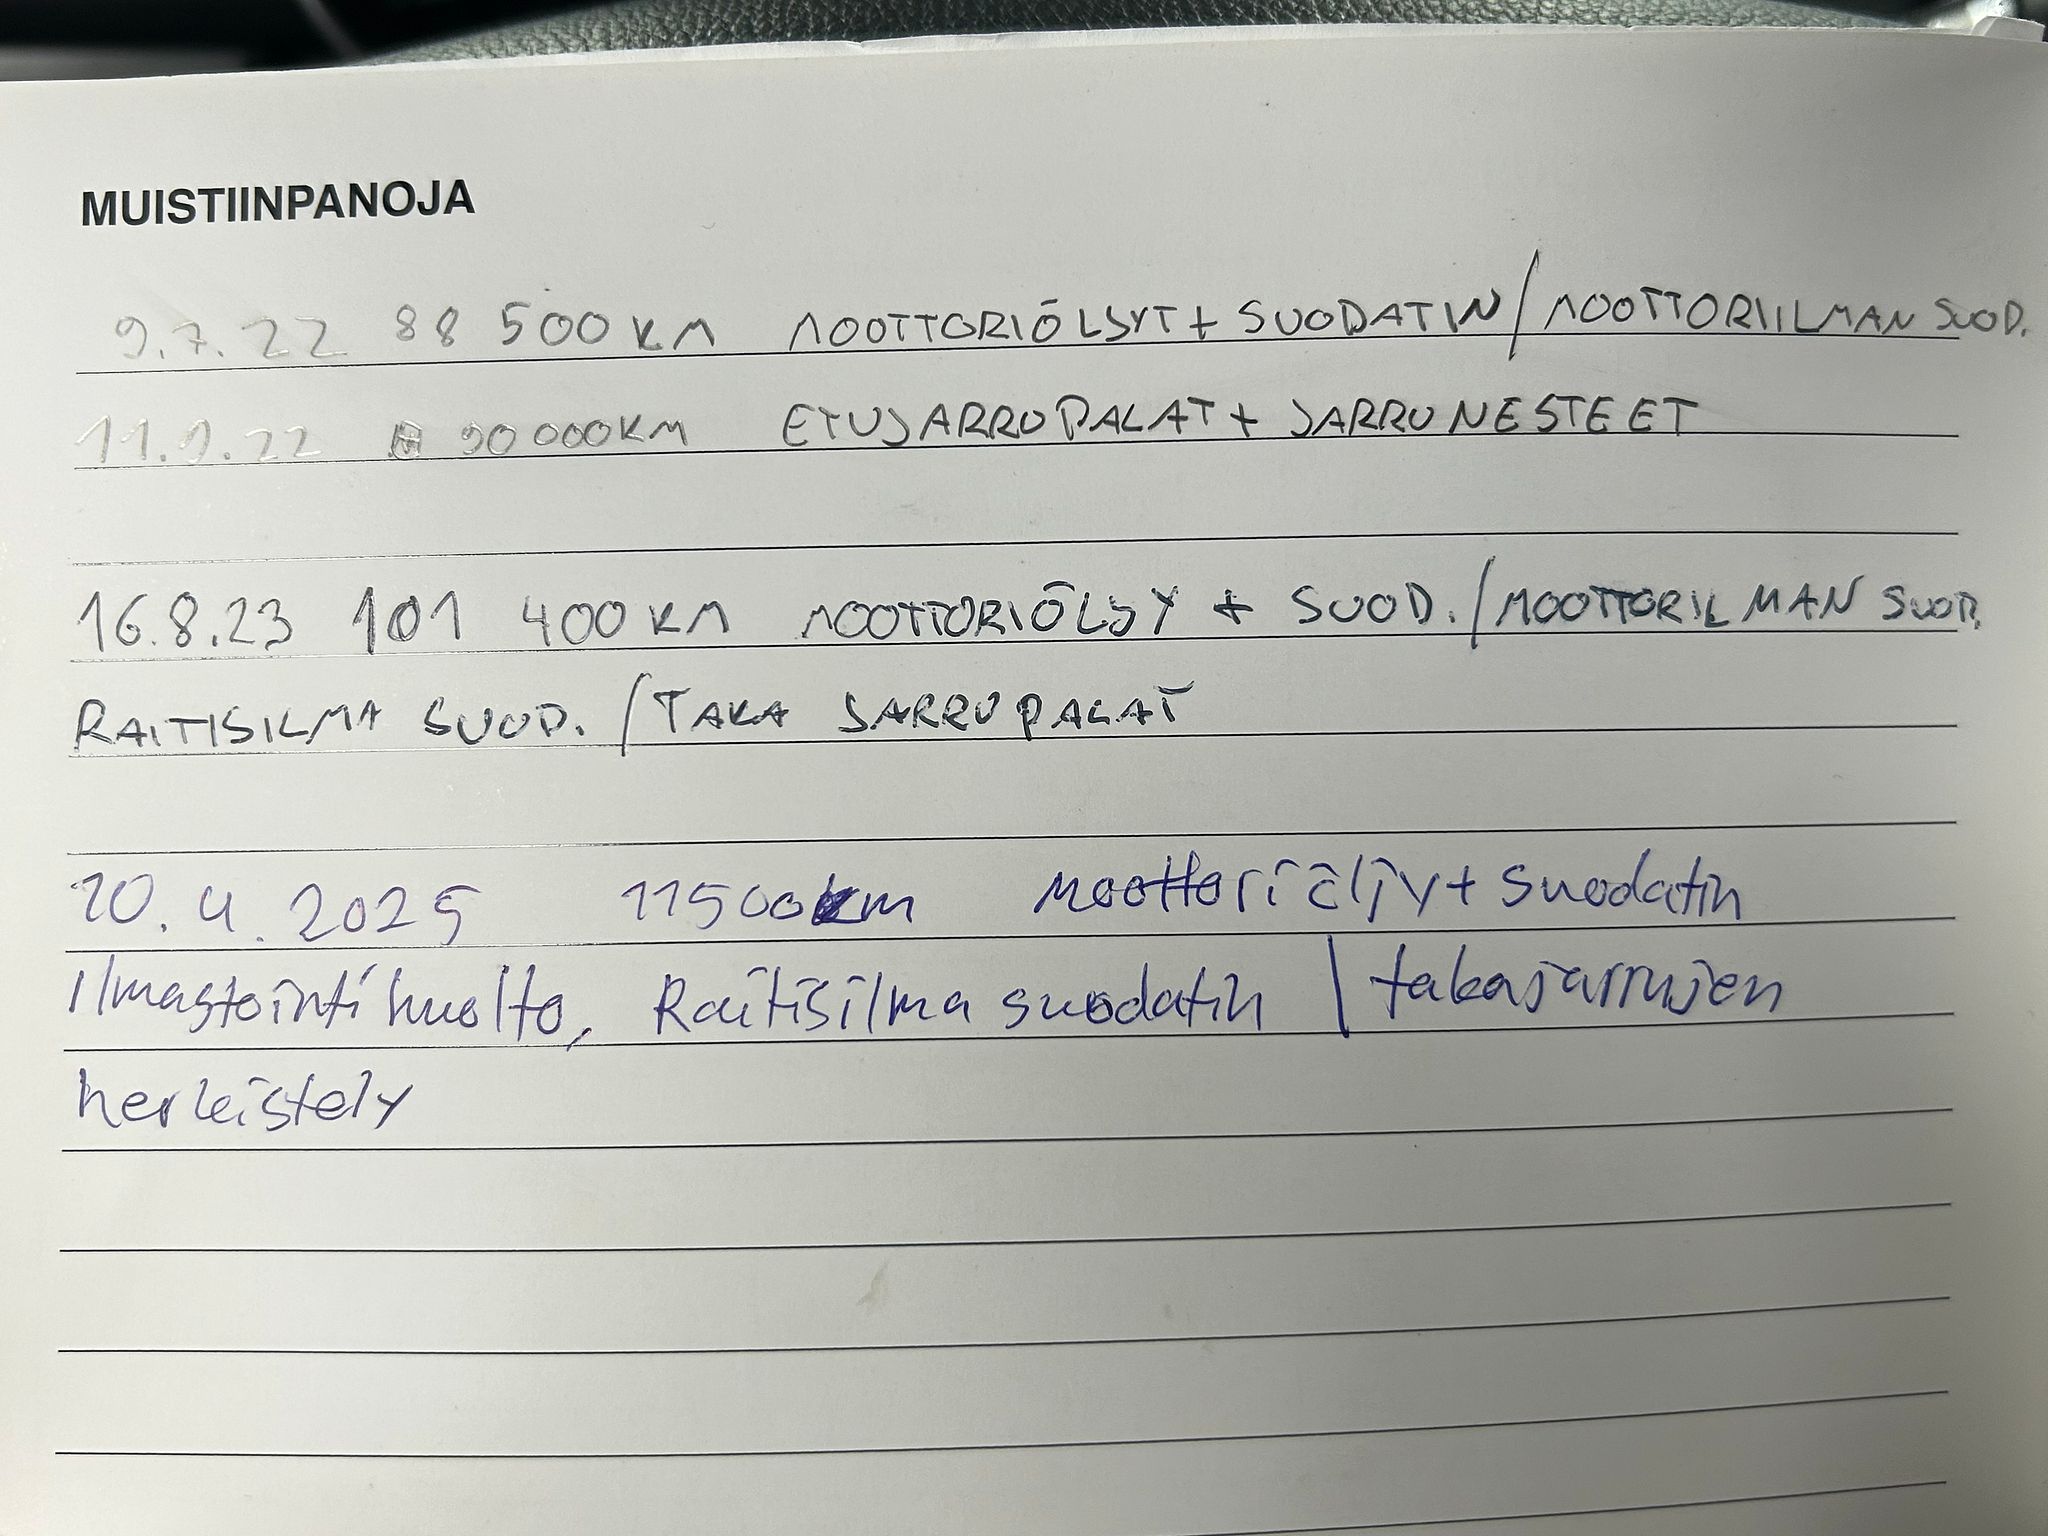 MUISTIINPANOJA
9.7.22 88 500 KM MOOTTORIÖLJYT + SUODATIN / MOOTTORIILMAN SUOD.
11.9.22 90 000 KM ETUJARRUPALAT + JARRUNESTEET
16.8.23 101 400 KM MOOTTORIÖLJY + SUOD. / MOOTTORILMAN SUOD.
RAITISILMA SUOD. / TAKA JARRUPALAT
10.4.2025 115000km moottoriöljy + suodatin
Ilmastointihuolto, Raitisilma suodatin / takajarrujen
herkistely